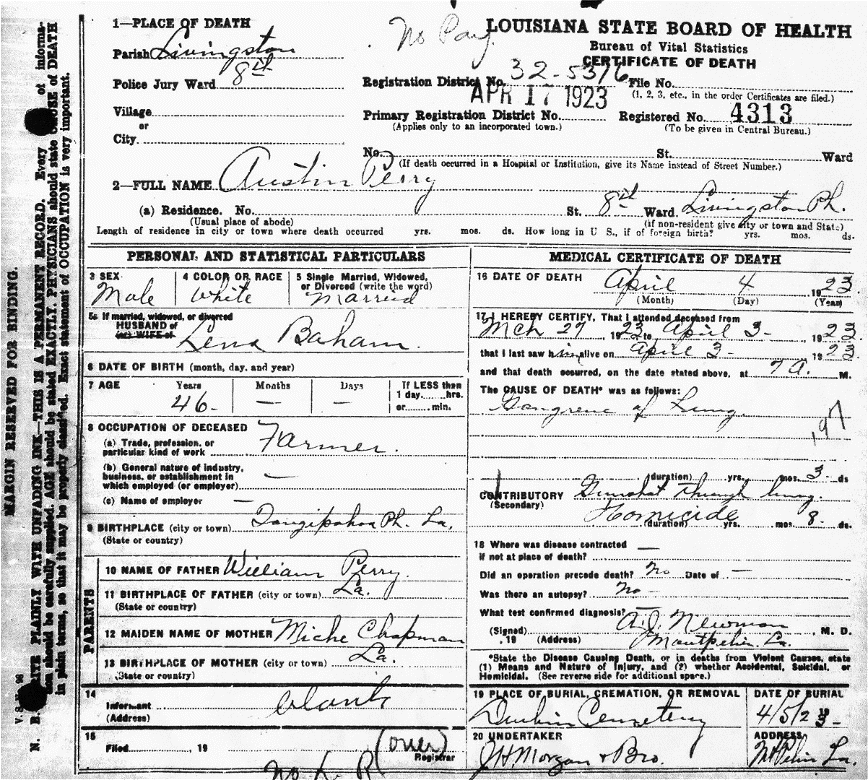 1—PLACE OF DEATH
No Pay
LOUISIANA STATE BOARD OF HEALTH
Bureau of Vital Statistics
CERTIFICATE OF DEATH
Parish Livingston
Police Jury Ward 8th
Village
or
City
Registration District No. 32-5376 File No.
(1, 2, 3, etc., in the order Certificates are filed.)
APR 17 1923
Primary Registration District No. Registered No. 4313
(Applies only to an incorporated town.) (To be given in Central Bureau.)
No. St. Ward
(If death occurred in a Hospital or Institution, give its Name instead of Street Number.)
2—FULL NAME Austin Perry
(a) Residence. No. St. 8th Ward. Livingston Ph.
(Usual place of abode) (if non-resident give city or town and State)
Length of residence in city or town where death occurred yrs. mos. ds. How long in U. S., if of foreign birth? yrs. mos. ds.
PERSONAL AND STATISTICAL PARTICULARS
3 SEX 4 COLOR OR RACE 5 Single Married, Widowed, or Divorced (write the word)
Male White Married
5a If married, widowed, or divorced
HUSBAND of
(or) WIFE of Lena Baham.
6 DATE OF BIRTH (month, day, and year)
7 AGE Years Months Days If LESS then
1 day......hrs.
or......min.
46 - — —
8 OCCUPATION OF DECEASED
(a) Trade, profession, or
particular kind of work Farmer.
(b) General nature of industry,
business, or establishment in
which employed (or employer) —
(c) Name of employer —
9 BIRTHPLACE (city or town) Tangipahoa Ph. La.
(State or country)
PARENTS
10 NAME OF FATHER William Perry.
11 BIRTHPLACE OF FATHER (city or town) La.
(State or country)
12 MAIDEN NAME OF MOTHER Miche Chapman
13 BIRTHPLACE OF MOTHER (city or town) La.
(State or country)
14
Informant blank
(Address)
15
Filed, 19
(over)
Registrar
MEDICAL CERTIFICATE OF DEATH
16 DATE OF DEATH April 4 1923
(Month) (Day) (Year)
17 I HEREBY CERTIFY, That I attended deceased from
Mch 27 1923 to April 3- 1923
that I last saw him alive on April 3- 1923
and that death occurred, on the date stated above, at 7 a. M.
The CAUSE OF DEATH* was as follows:
Gangrene of Lung.
197
(duration) yrs. mos. 3- ds
CONTRIBUTORY Gunshot through lung.
(Secondary)
Homicide
(duration) yrs. mos. 8- ds.
18 Where was disease contracted
if not at place of death? —
Did an operation precede death? No Date of —
Was there an autopsy? No -
What test confirmed diagnosis?
(Signed) A.J. Newman M. D.
, 19 (Address) Montpelier, La.
*State the Disease Causing Death, or in deaths from Violent Causes, state
(1) Means and Nature of Injury, and (2) whether Accidental, Suicidal, or
Homicidal. (See reverse side for additional space.)
19 PLACE OF BURIAL, CREMATION, OR REMOVAL DATE OF BURIAL
Durbin Cemetery 4/5/23-
20 UNDERTAKER ADDRESS
J H Morgan & Bro. Mt Pelier La.
MARGIN RESERVED FOR BINDING.
WRITE PLAINLY WITH UNFADING INK—THIS IS A PERMANENT RECORD. Every of informa-
tion should be carefully supplied. AGE should be stated EXACTLY. PHYSICIANS should state CAUSE of DEATH
in plain terms, so that it may be properly classified. Exact statement of OCCUPATION is very important.
N. B.